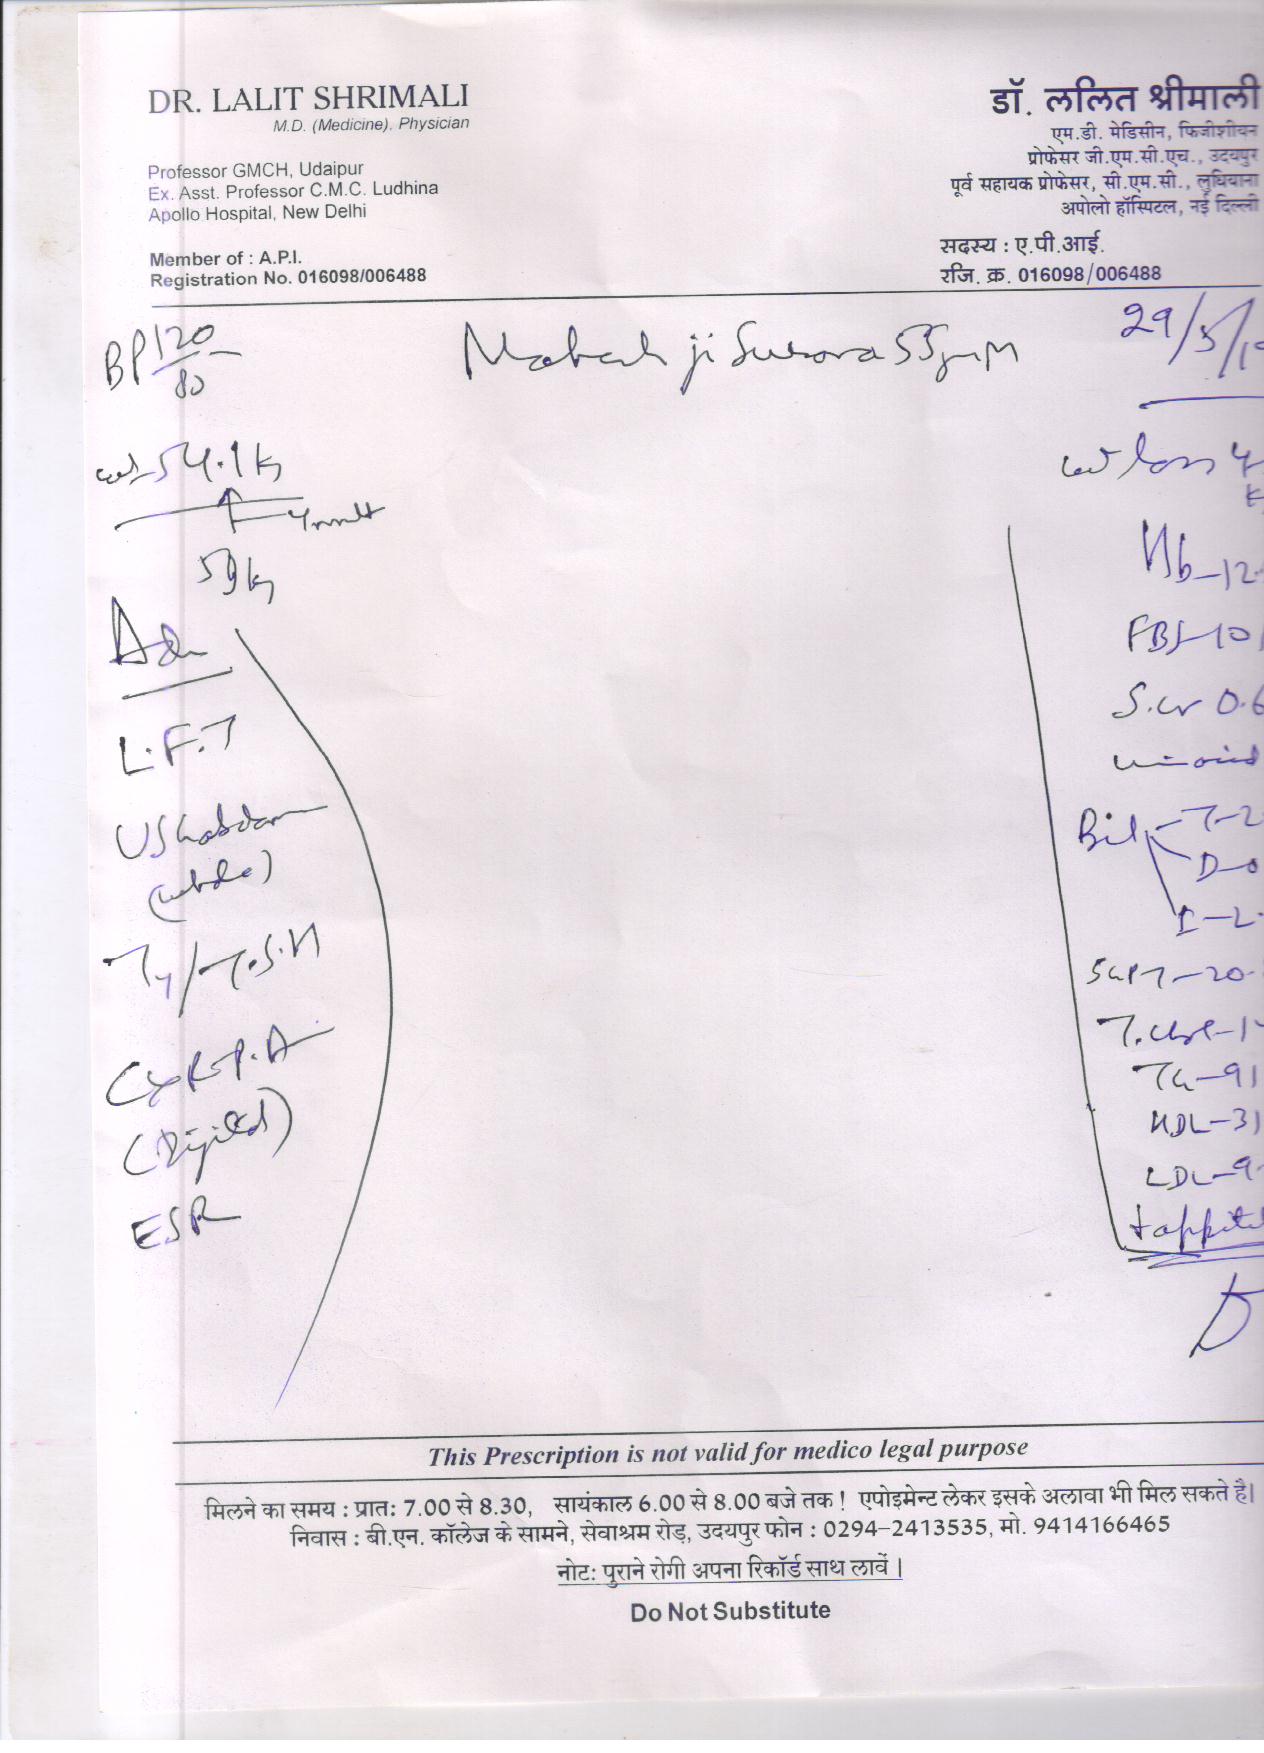 DR. LALIT SHRIMALI
M.D. (Medicine). Physician
Professor GMCH, Udaipur
Ex. Asst. Professor C.M.C. Ludhina
Apollo Hospital, New Delhi
Member of : A.P.I.
Registration No. 016098/006488
डॉ. ललित श्रीमाली
एम.डी. मेडिसीन, फिजीशीयन
प्रोफेसर जी.एम.सी.एच., उदयपुर
पूर्व सहायक प्रोफेसर, सी.एम.सी., लुधियाना
अपोलो हॉस्पिटल, नई दिल्ली
सदस्य : ए.पी.आई.
रजि. क्र. 016098/006488
29/5/1
BP 120/80
ji
wt 54.1 kg
59 kg
Adv
L.F.T
USG abdomen
(whole)
T4/T.S.H
CXR-P.A
(Digital)
ESR
wt loss 4
k
Hb-12.
FBS-10
S.cr 0.6
Bil-T-2
D-0
I-2.
SGPT-20.
T.chol-1
TG-91
HDL-31
LDL-9
This Prescription is not valid for medico legal purpose
मिलने का समय : प्रातः 7.00 से 8.30, सायंकाल 6.00 से 8.00 बजे तक ! एपोइमेन्ट लेकर इसके अलावा भी मिल सकते है।
निवास : बी.एन. कॉलेज के सामने, सेवाश्रम रोड़, उदयपुर फोन : 0294-2413535, मो. 9414166465
नोट: पुराने रोगी अपना रिकॉर्ड साथ लावें ।
Do Not Substitute